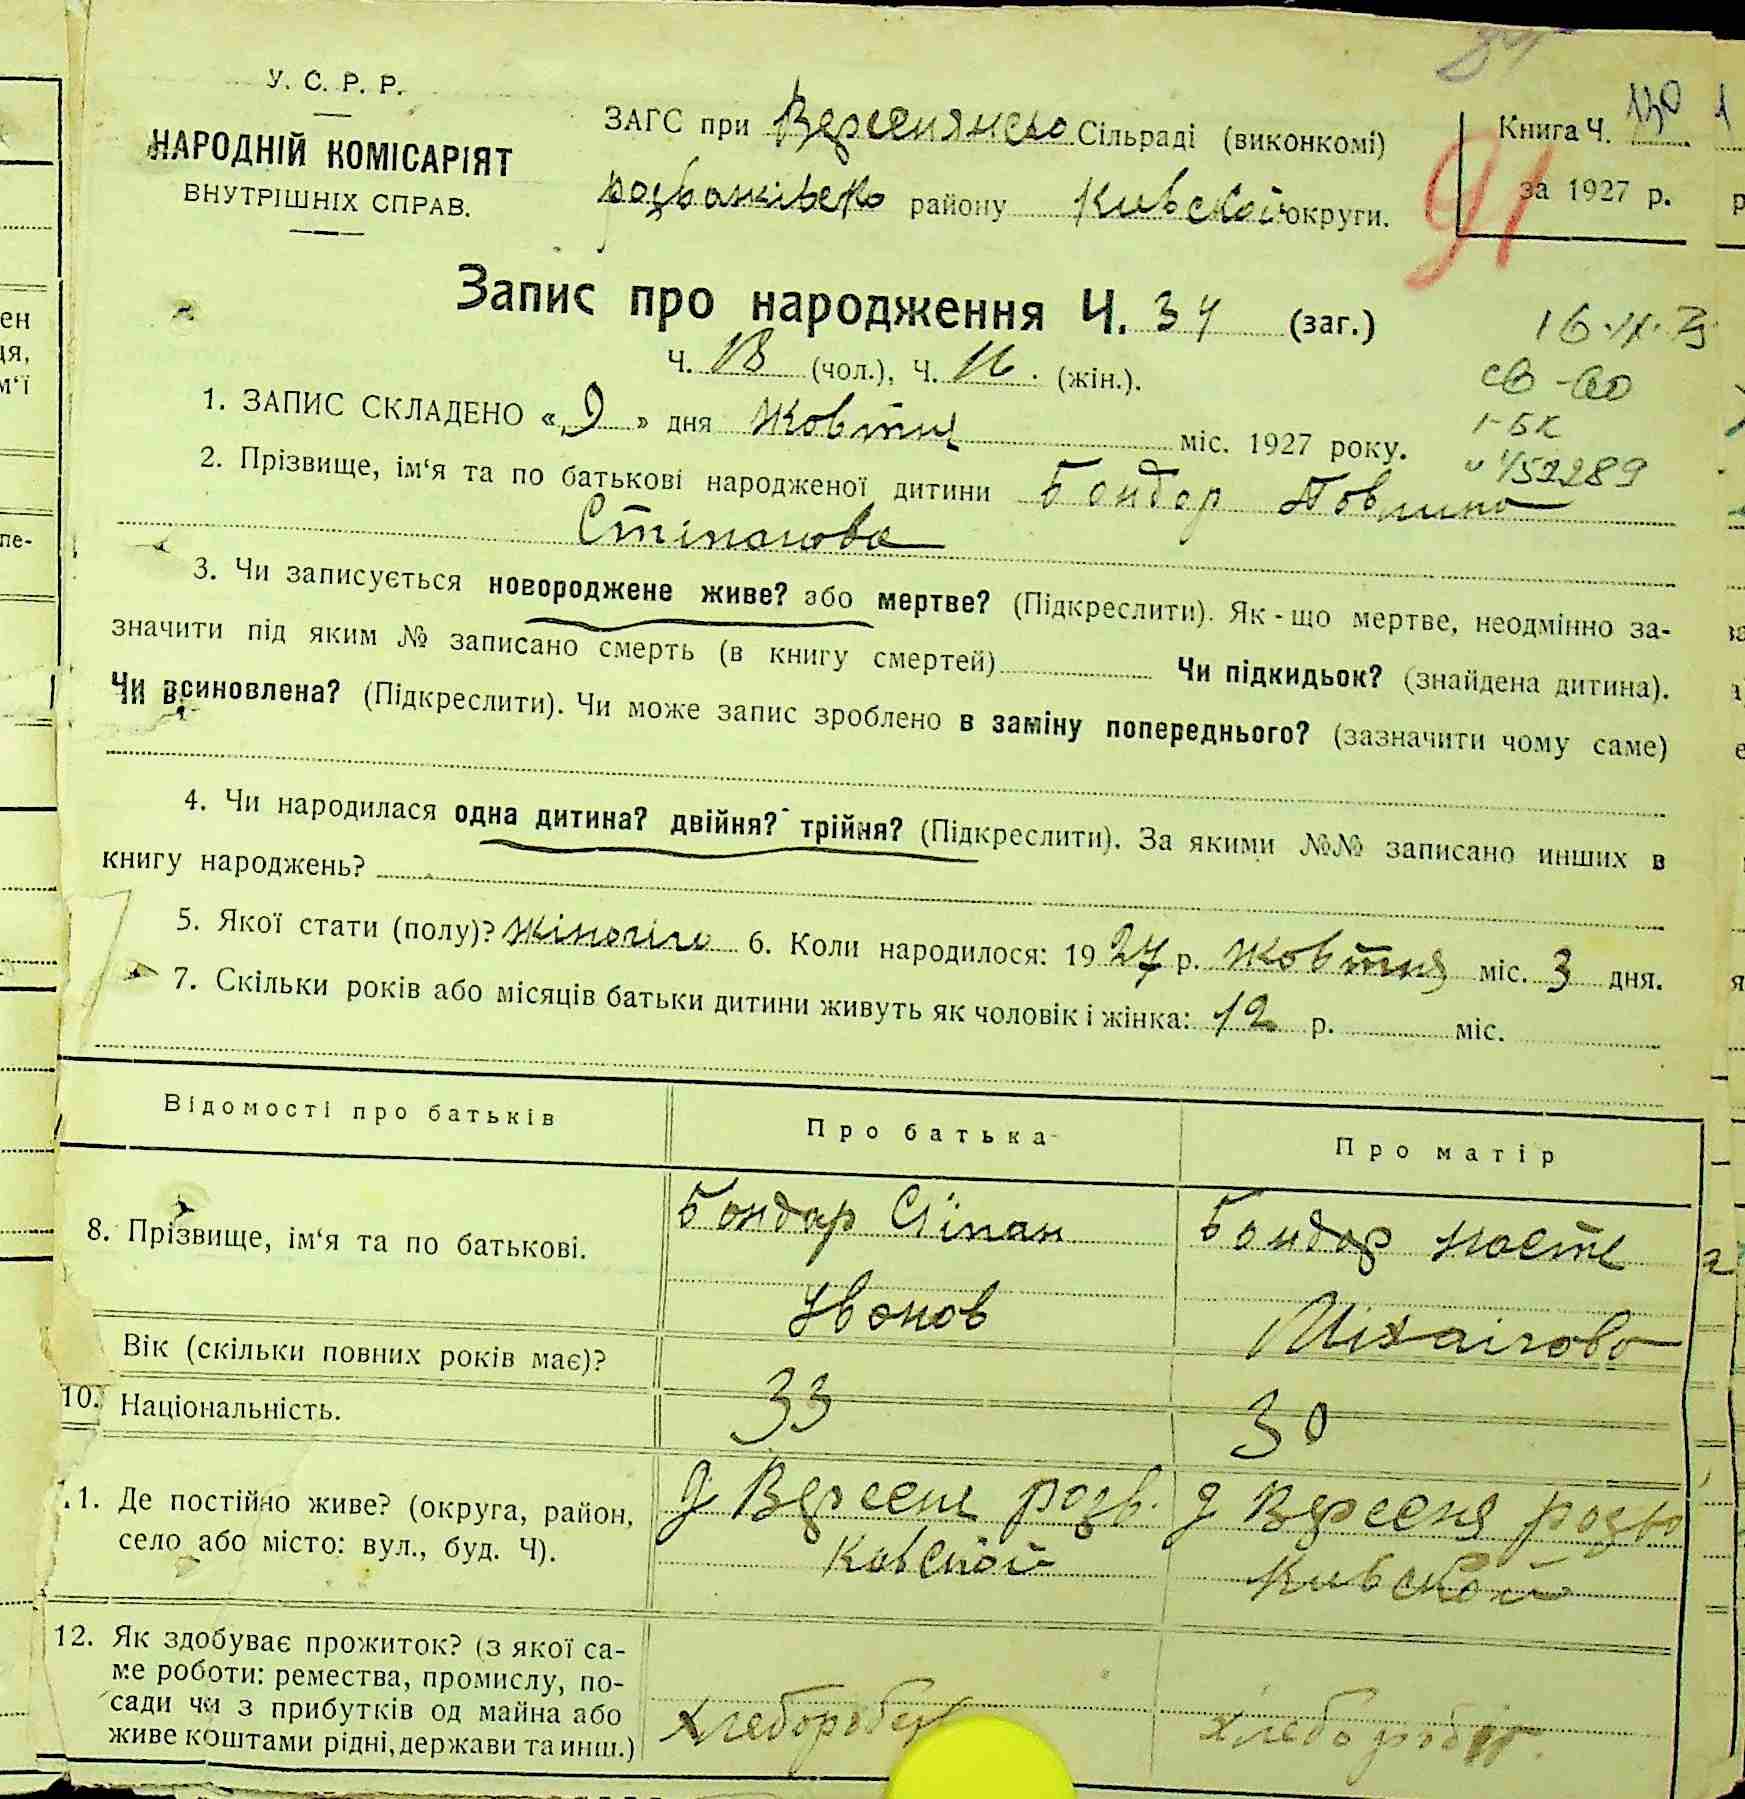 У. С. Р. Р.
НАРОДНІЙ КОМІСАРІЯТ
ВНУТРІШНІХ СПРАВ.
ЗАГС при Вереснянско Сільраді (виконкомі)
розважівско району Кивской округи.
Книга Ч. 130
за 1927 р.
91
Запис про народження Ч. 34 (заг.)
Ч. 18 (чол.), Ч. 16. (жін.).
1. ЗАПИС СКЛАДЕНО « 9 » дня Жовтня міс. 1927 року.
2. Прізвище, ім‘я та по батькові народженої дитини Бондор Повлина
Степанова
3. Чи записується новороджене живе? або мертве? (Підкреслити). Як-що мертве, неодмінно за-
значити під яким № записано смерть (в книгу смертей) Чи підкидьок? (знайдена дитина).
Чи всиновлена? (Підкреслити). Чи може запис зроблено в заміну попереднього? (зазначити чому саме)
4. Чи народилася одна дитина? двійня? трійня? (Підкреслити). За якими №№ записано инших в
книгу народжень?
5. Якої стати (полу)? жіночіго 6. Коли народилося: 1927 р. жовтня міс. 3 дня.
7. Скільки років або місяців батьки дитини живуть як чоловік і жінка: 12 р. міс.
Відомості про батьків Про батька Про матір
8. Прізвище, ім‘я та по батькові. Бондар Стіпан Бондар Настя
Івонов Міхайлово
Вік (скільки повних років має)? 33 30
10. Національність.
11. Де постійно живе? (округа, район, д Вересня розв. д Вересня розво
село або місто: вул., буд. Ч). Кивской Кивской
12. Як здобуває прожиток? (з якої са-
ме роботи: ремества, промислу, по-
сади чи з прибутків од майна або
живе коштами рідні, держави та инш.) хлебороб хлебороб